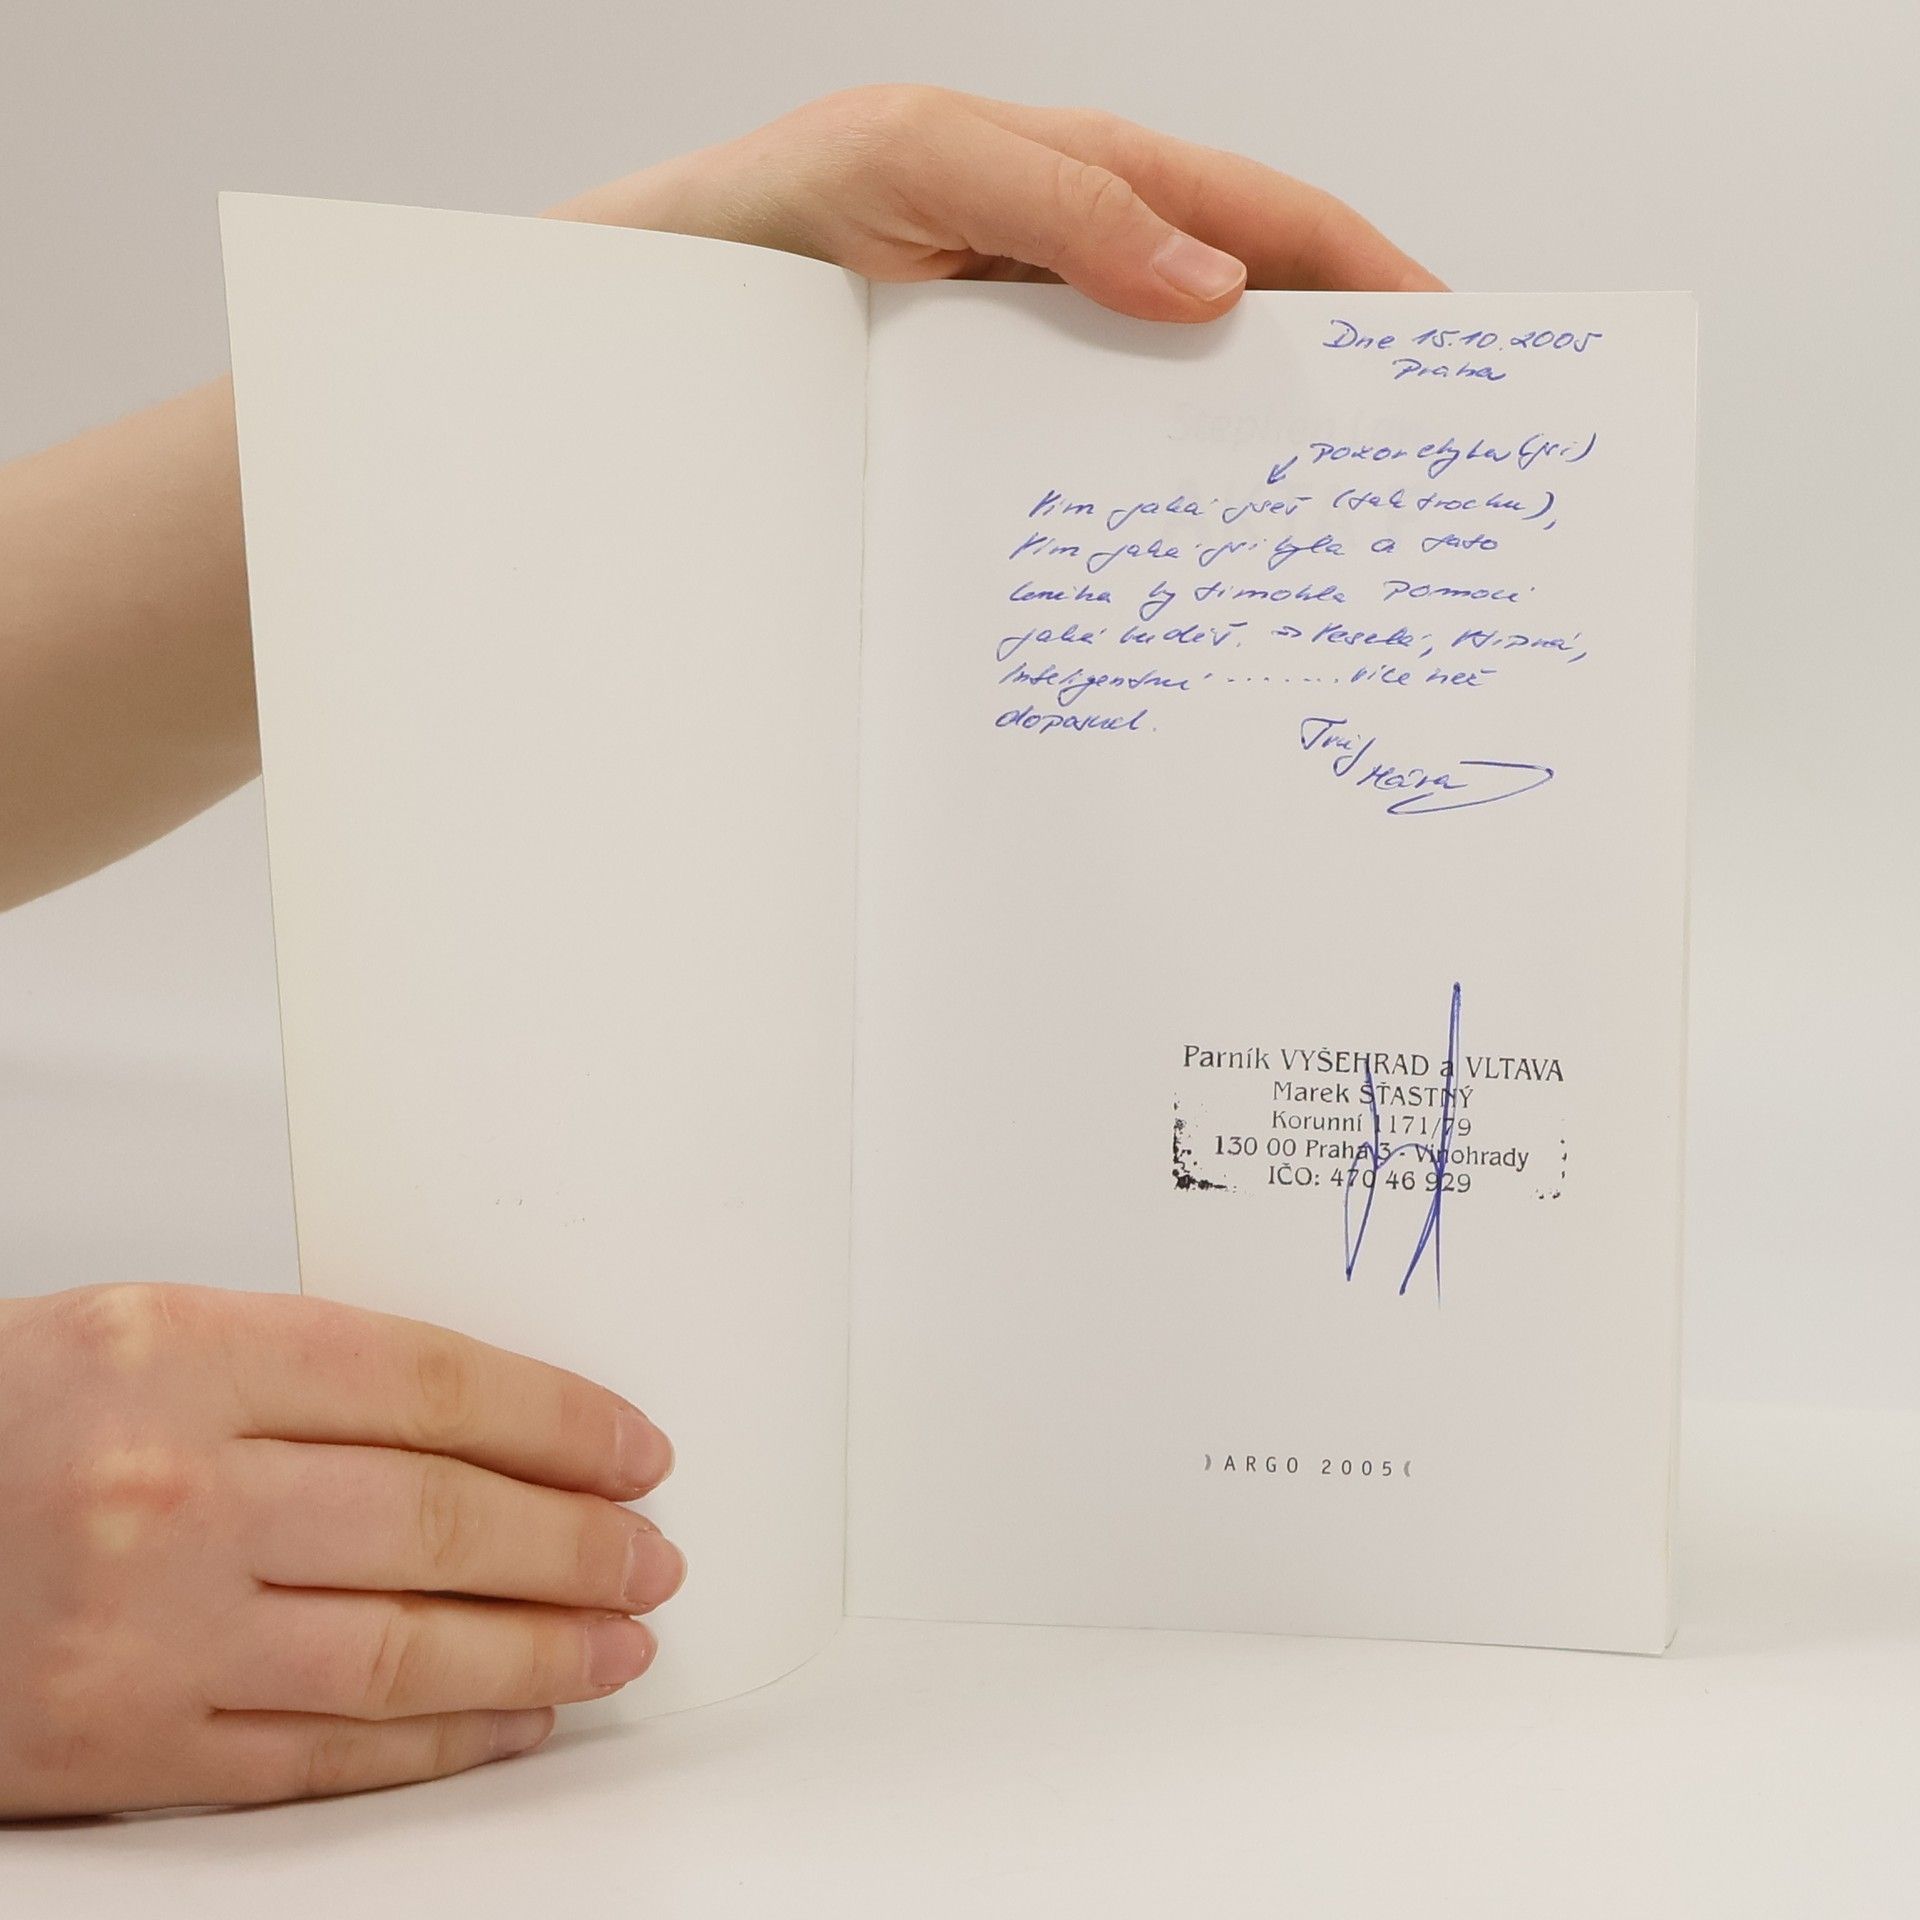 Dne 15.10.2005
Praha
Pozor chyba (jsi)
Vím jaká jseš (tak trochu),
Vím jaká jsi byla a tato
kniha by ti mohla pomoci
jaká budeš. => Veselá, Vtipná,
Inteligentní ........ více než
doposud.
Tvůj
Kára
Parník VYŠEHRAD a VLTAVA
Marek ŠŤASTNÝ
Korunní 1171/79
130 00 Praha 3 - Vinohrady
IČO: 470 46 929
ARGO 2005